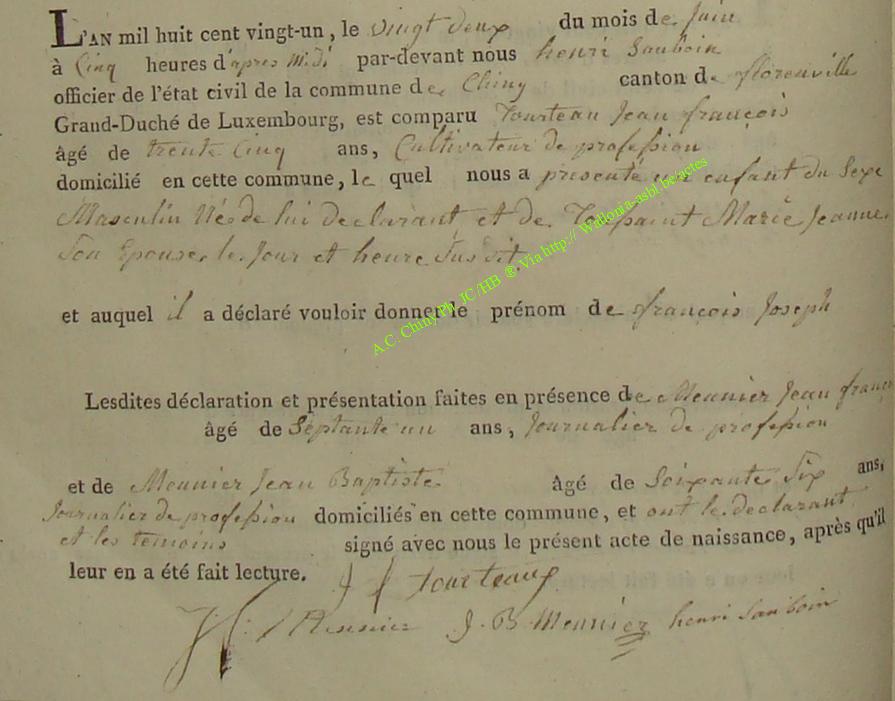 L'AN mil huit cent vingt-un, le vingt deux du mois de Juin
à Cinq heures d'apres midi par-devant nous henri Sauboin
officier de l'état civil de la commune de Chiny canton de florenville
Grand-Duché de Luxembourg, est comparu Tourteau Jean françois
âgé de trente Cinq ans, Cultivateur de profession
domicilié en cette commune, le quel nous a presenté un enfant du Sexe
Masculin Né de lui declarant et de Marie Jeanne
Son Epouse, le Jour et heure Susdit
et auquel il a déclaré vouloir donner le prénom de françois Joseph
Lesdites déclaration et présentation faites en présence de Meunier Jean franç
âgé de Septante un ans, Journalier de profession
et de Meunier Jean Baptiste âgé de Soixante Six ans,
Journalier de profession domiciliés en cette commune, et ont le declarant
et les temoins signé avec nous le présent acte de naissance, après qu'il
leur en a été fait lecture. J f tourteaux
J. B Meunier henri Sauboin
A.C. Chiny Ph. JC/HB ® Via http:// Wallonia-asbl.be/actes